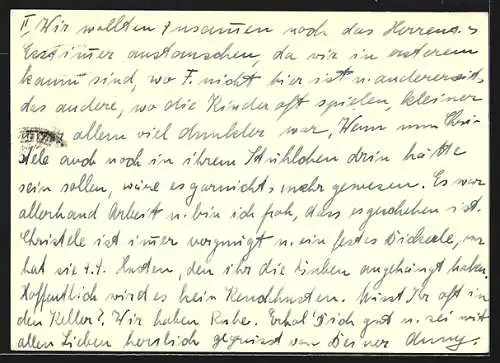 II Wir wollten zusammen noch das Herren- u.
Esszimer austauschen, da wir in ersterem
kaum sind, wo F. nicht hier ist u. andererseits
das andere, wo die Kinder oft spielen, kleiner
u. vor allem viel dunkler war, Wenn nun Chri-
stele auch noch in ihrem Stühlchen drin hätte
sein sollen, wäre es garnichts mehr gewesen. Es war
allerhand Arbeit u. bin ich froh, dass es geschehen ist.
Christele ist imer vergnügt u. ein festes Dickerle, nur
hat sie z.Z. Husten, den ihr die Buben angehängt haben.
Hoffentlich wird es kein Keuchhusten. Müsst Ihr oft in
den Keller? Wir haben Ruhe. Erhol Dich gut u. sei mit
allen Lieben herzlich gegrüsst von Deiner